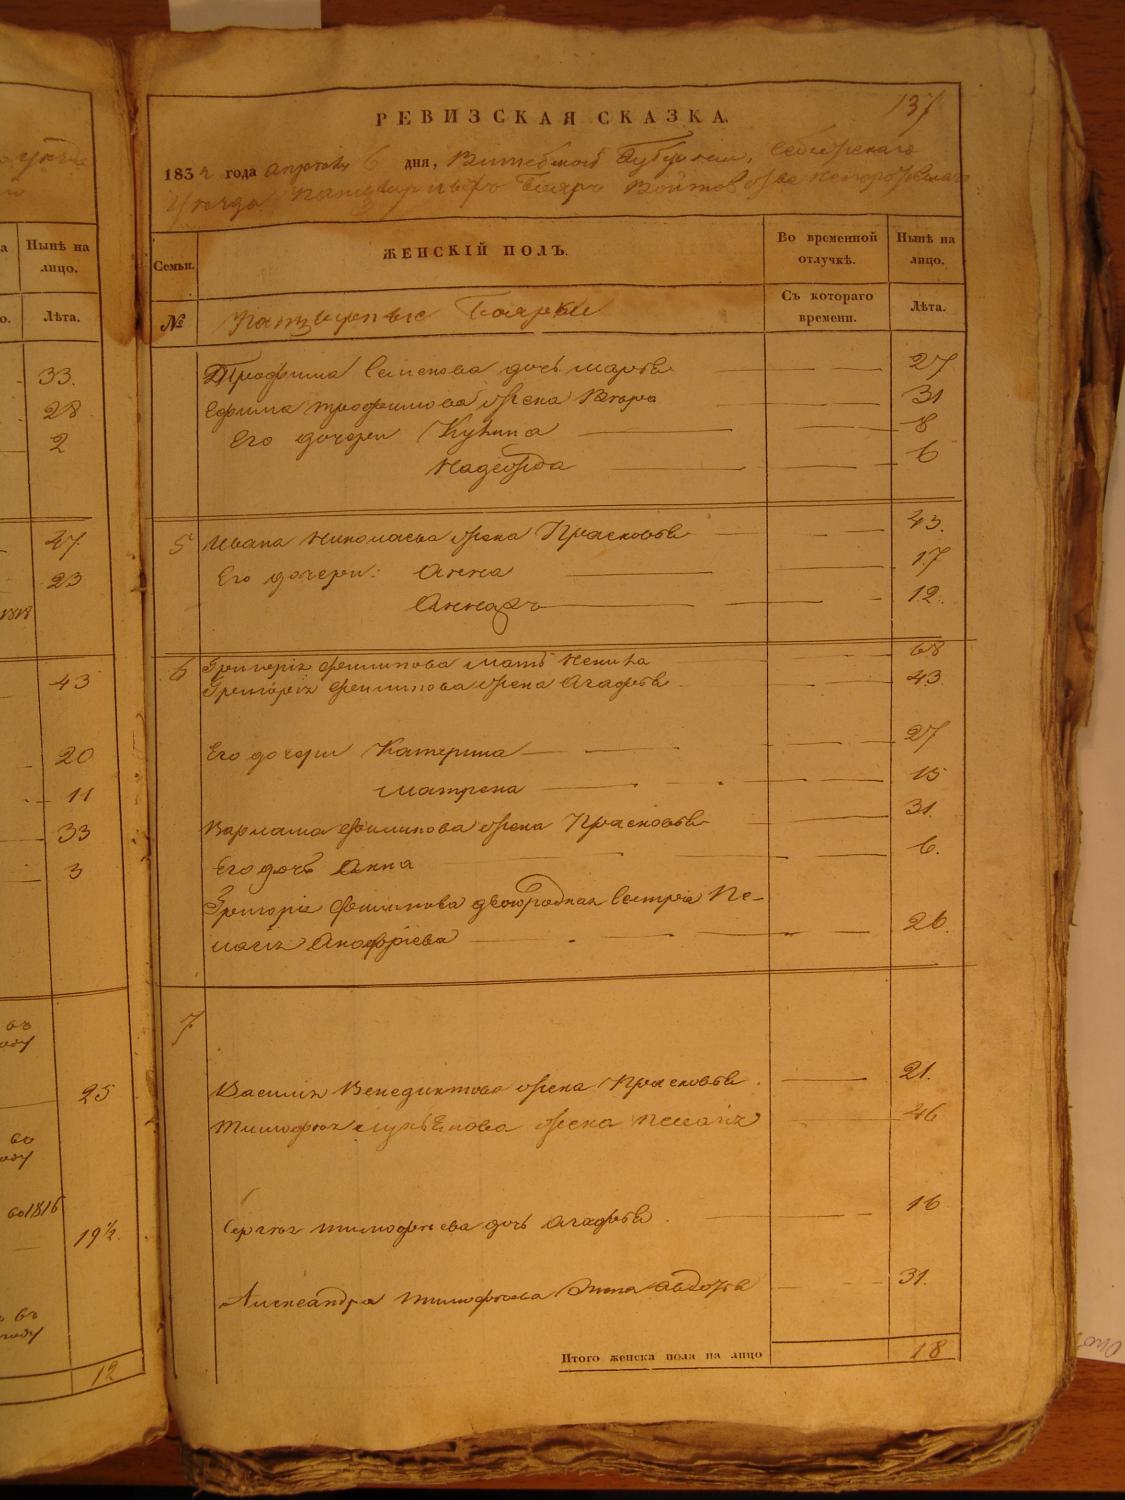 137
РЕВИЗСКАЯ СКАЗКА.
1834 года апреля 6 дня, Витебской Губернии, Себежскаго
Уезда Панцырныхъ Бояръ Войтовства
Семьи. ЖЕНСКІЙ ПОЛЪ. Во временной отлучкѣ. Нынѣ на лицо.
№ Панцырные Боярки Съ котораго времени. Лѣта.
Трофима Семенова дочь Марѳа 27
Ефима Трофимова жена 31
Его дочери 8
Надежда 6
5 Ивана Николаева жена Прасковья 43.
Его дочери: Анна 17
Анна 2я 12.
6 Григорія Филипова мать 68
Григорія Филипова жена Агафья 43
Его дочери Катерина 27
Матрена 15
Варлама Филипова жена Прасковья 31.
Его дочь Анна 6.
Григорія Филипова двоюродная сестра Пе-
лагія 26.
7
Василія Венедиктова жена Прасковья 21.
Тимофея жена 46
Сергея Тимофеева дочь Агафья 16
Александра Тимофеева жена Авдотья 31.
Итого женска пола на лицо 18
Нынѣ на лицо.
Лѣта.
33.
28
2
47
23
1818
43
20
11
33
3
въ
году
25
во
году
во 1816
19½.
въ
году
12